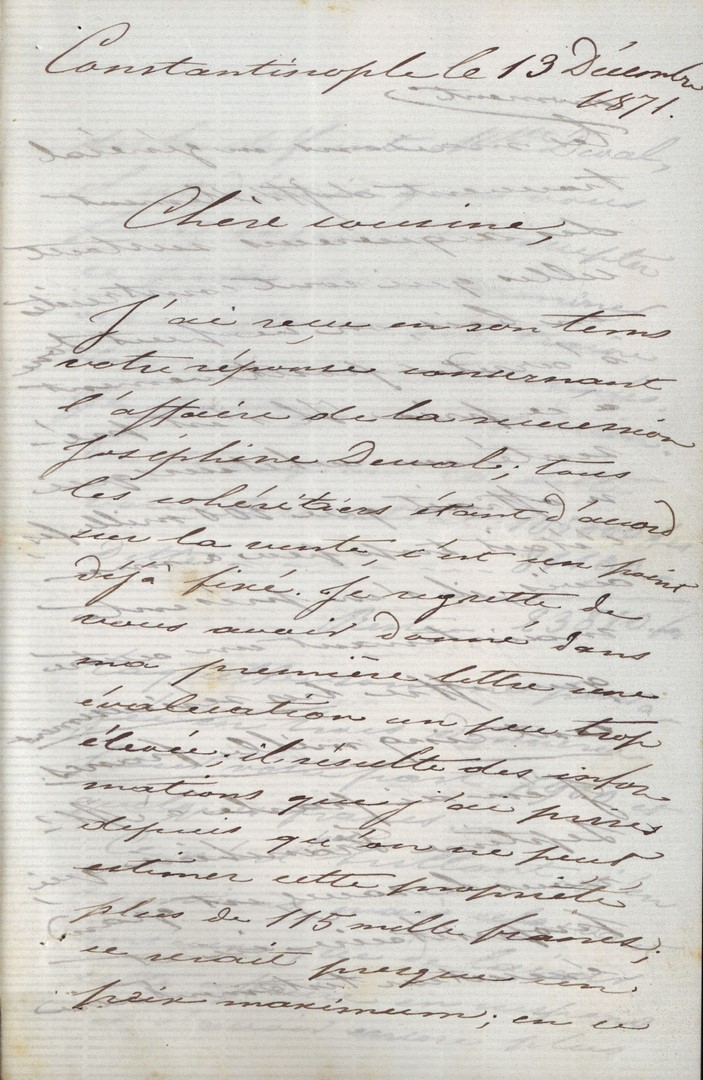 Constantinople le 13 Décembre
1871.
Chère cousine,
J'ai reçue en son tems
votre réponse concernant
l'affaire de la succession
Joséphine Deval; tous
les cohéritiers étant d'accord
sur la vente, c'est un point
déjà fixé. Je regrette de
vous avoir donné dans
ma première lettre une
évaluation un peu trop
élevée; il résulte des infor-
mations que j'ai prises
depuis qu'on ne peut
estimer cette propriété
plus de 115 mille francs;
ce serait presque un
prix maximum; en ce